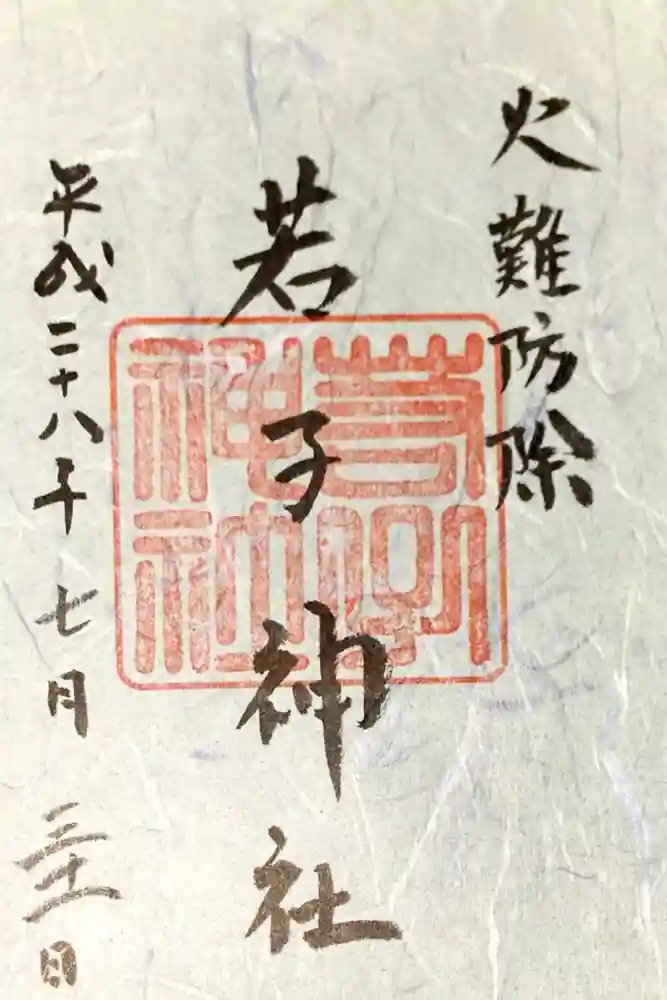 火難防除
若子神社
平成二十八年七月三十一日